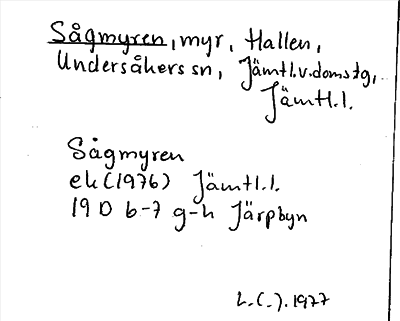 Sågmyren, myr, Hallen,
Undersåkers sn, Jämtl.v.domstg,
Jämtl.l.
Sågmyren
ek (1976) Jämtl.l.
19 D 6-7 g-h Järpbyn
L.(.). 1977